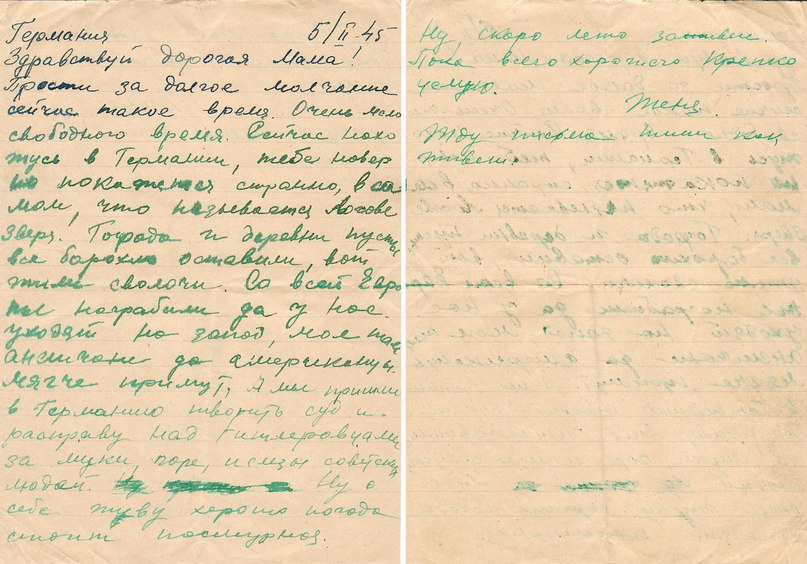 Германия 5/II-45
Здравствуй дорогая Мама!
Прости за далгое молчание
сейчас такое время. Очень мало
свободного время. Сейчас нахо
жусь в Германии, тебе навер
но покажется странно, в са
мом, что называется логове
зверя. Горада и деревни пусты
все барахло оставили, вот
жили сволочи. Со всей Евро
пы награбили да у нас.
уходят на запад, мол там
англичани да американцы.
мягче примут, А мы пришли
в Германию творить суд и
расправу над гитлеровцами
за муки, горе, и слёзы советских
людей. Ну о
себе живу хорошо погода
стоит пасмурная.
Ну скоро лето
Пока всего хорошего Крепко
целую.
Женя.
Жду письма пиши как
живеш.